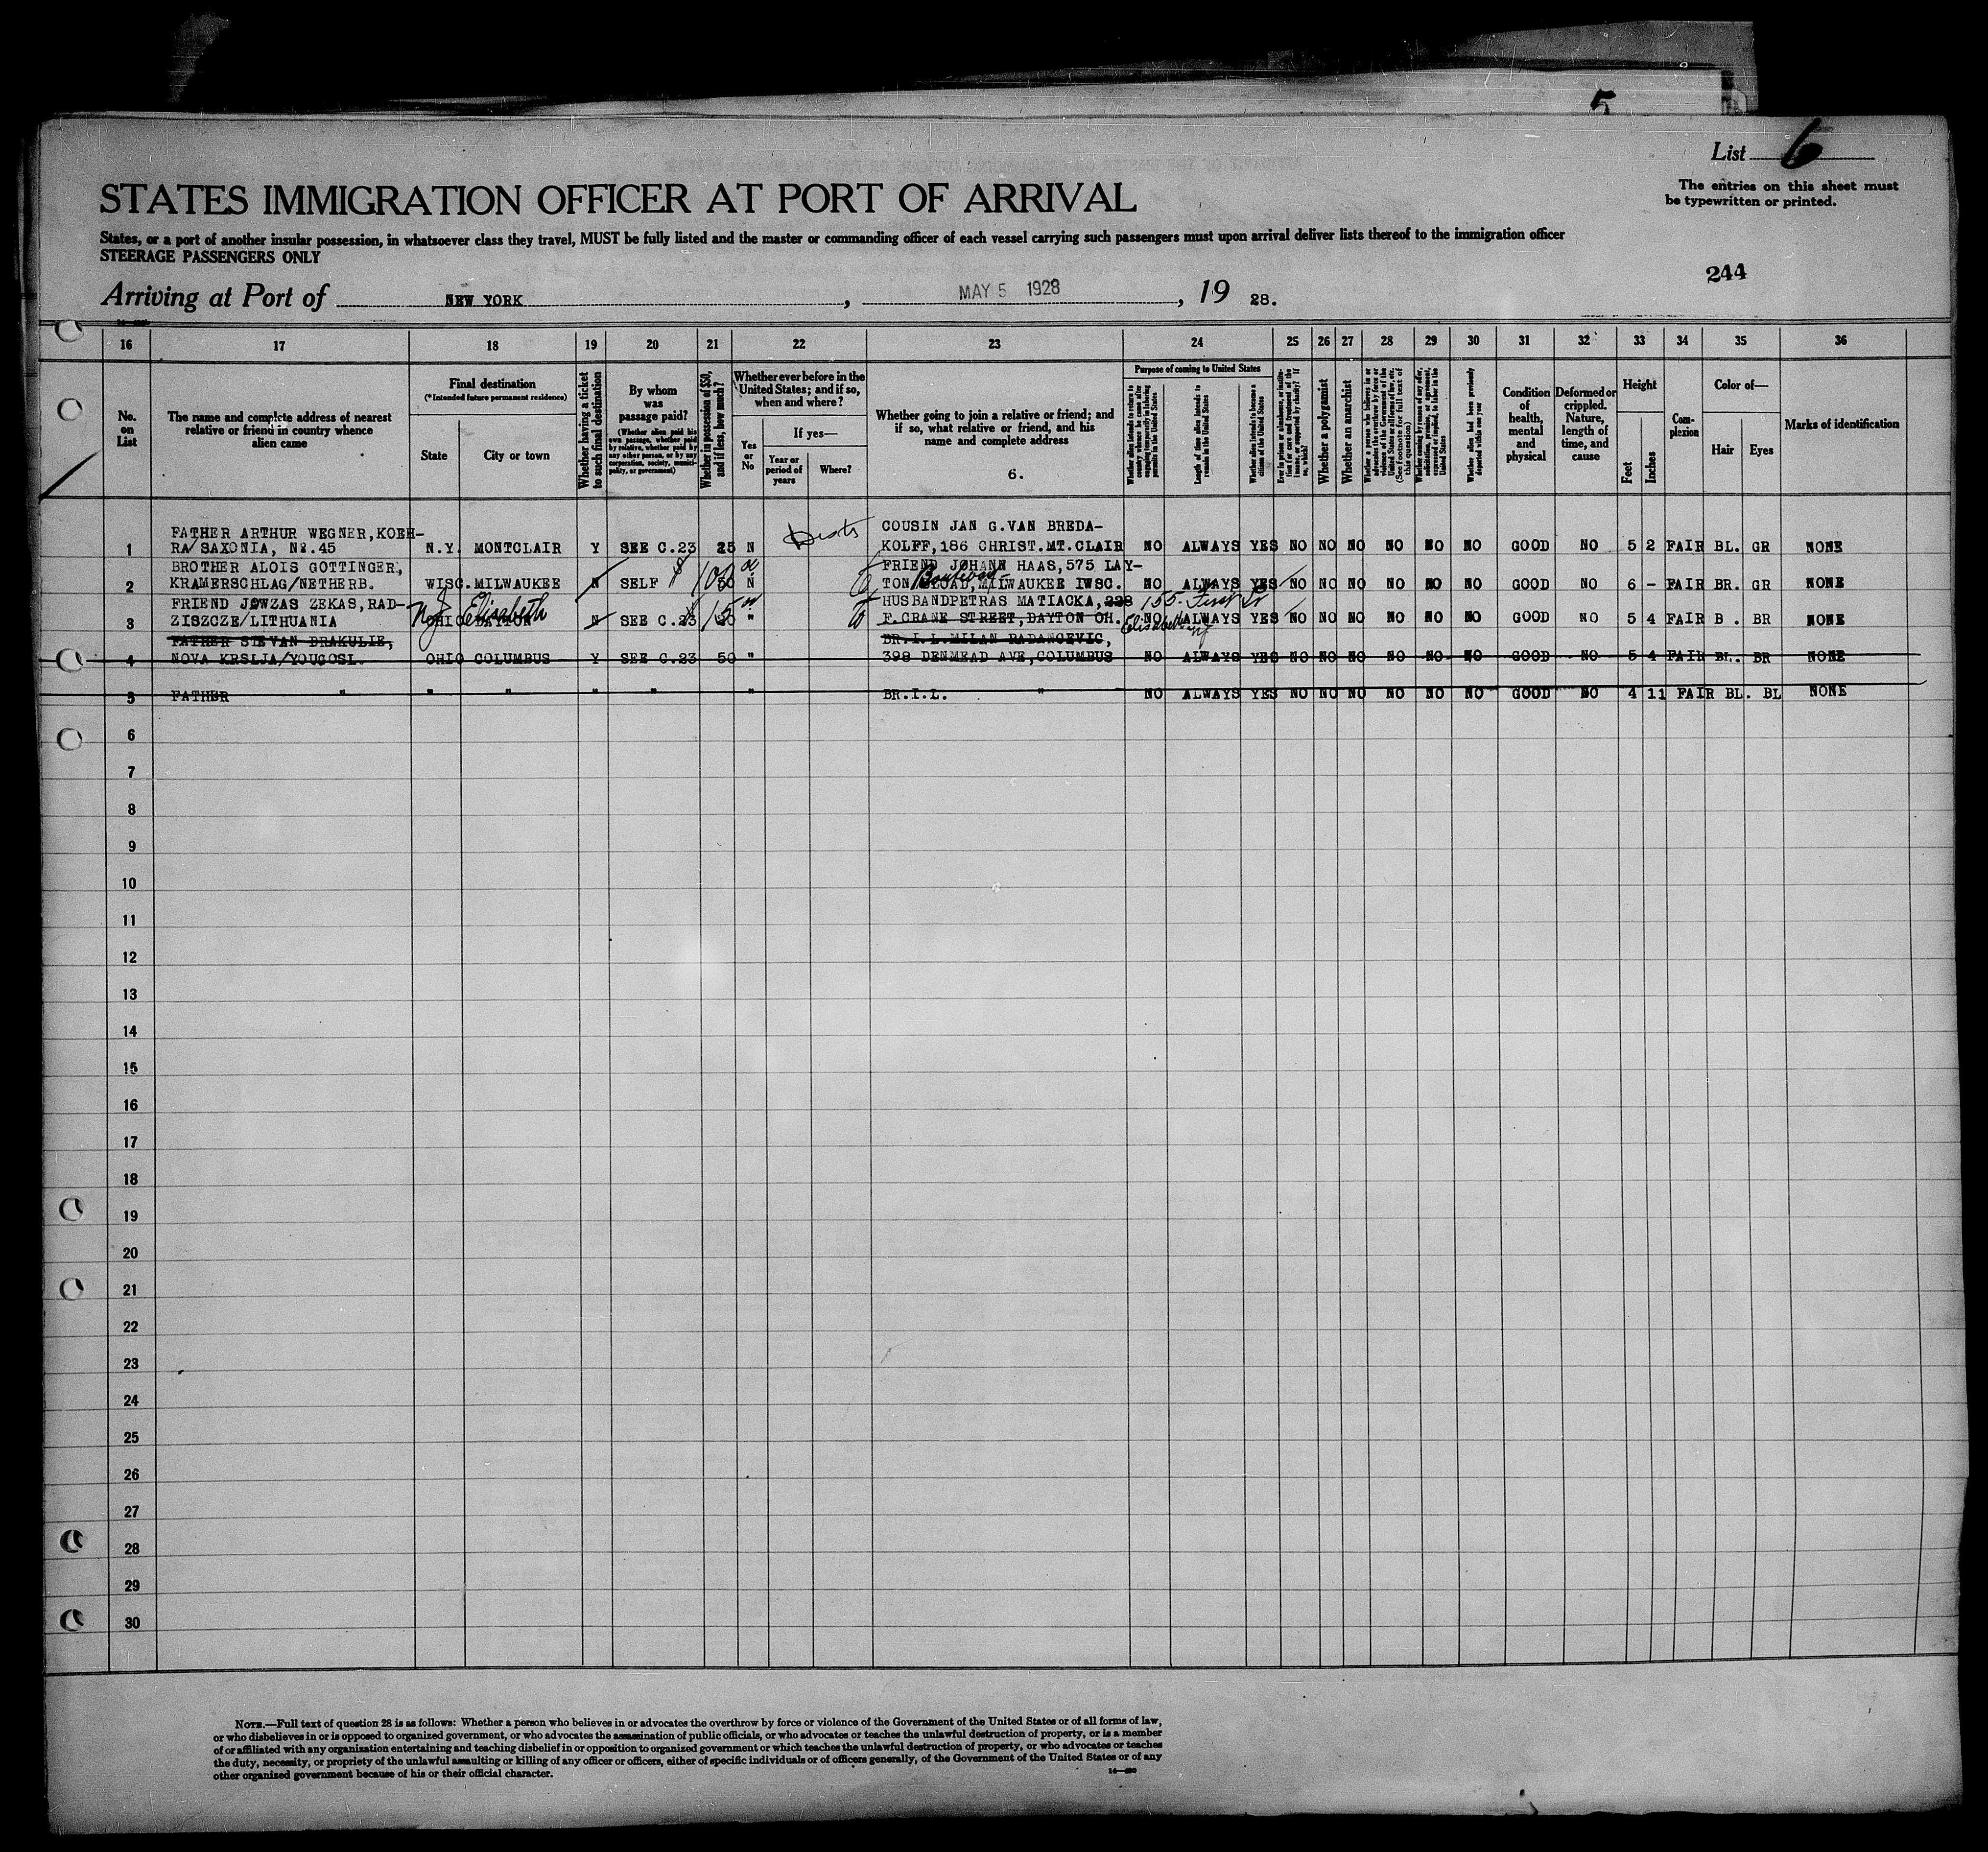 5
List 6
The entries on this sheet must
be typewritten or printed.
STATES IMMIGRATION OFFICER AT PORT OF ARRIVAL
States, or a port of another insular possession, in whatsoever class they travel, MUST be fully listed and the master or commanding officer of each vessel carrying such passengers must upon arrival deliver lists thereof to the immigration officer
STEERAGE PASSENGERS ONLY
244
Arriving at Port of NEW YORK, MAY 5 1928, 19 28.
16 17 18 19 20 21 22 23 24 25 26 27 28 29 30 31 32 33 34 35 36
No. on List
The name and complete address of nearest
relative or friend in country whence
alien came
Final destination
(*Intended future permanent residence)
State
City or town
Whether having a ticket
to such final destination
By whom
was
passage paid?
(Whether alien paid his
own passage, whether paid
by relative, whether paid by
any other person, or by any
corporation, society, munici-
pality, or government)
Whether in possession of $50,
and if less, how much?
Whether ever before in the
United States; and if so,
when and where?
Yes
or
No
If yes—
Year or
period of
years
Where?
Whether going to join a relative or friend; and
if so, what relative or friend, and his
name and complete address
6.
Purpose of coming to United States
Length of time alien intends to
remain in the United States
Whether alien intends to become a
citizen of the United States
Whether a polygamist
Whether an anarchist
Whether alien had been previously
deported within one year
Condition
of
health,
mental
and
physical
Deformed or
crippled.
Nature,
length of
time, and
cause
Height
Feet
Inches
Com-
plexion
Color of—
Hair
Eyes
Marks of identification
FATHER ARTHUR WEGNER,KOEH- COUSIN JAN G.VAN BREDA-
1 RA/SAXONIA, N2.45 N.Y. MONTCLAIR Y SEE C.23 25 N KOLFF,186 CHRIST.MT.CLAIR NO ALWAYS YES NO NO NO NO NO NO GOOD NO 5 2 FAIR BL. GR NONE
BROTHER ALOIS GOTTINGER, FRIEND JOHANN HAAS,575 LAY-
2 KRAMERSCHLAG/NETHERB. WISC. MILWAUKEE N SELF 50 N TON Boulevard MILWAUKEE IWSC. NO ALWAYS YES NO NO NO NO NO NO GOOD NO 6 - FAIR BR. GR NONE
FRIEND JOWZAS ZEKAS,RAD- HUSBANDPETRAS MATIACKA,228 155 First St
3 ZISZCZE/LITHUANIA OHIO DAYTON NJ Elisabeth N SEE C.23 50 " F.CRANE STREET,DAYTON OH. Elisabeth NJ NO ALWAYS YES NO NO NO NO NO NO GOOD NO 5 4 FAIR B . BR NONE
FATHER STEVAN DRAKULIE, BR.I.L.MILAN RADANCEVIC,
4 NOVA KRSLJA/YOUGOSL. OHIO COLUMBUS Y SEE C.23 50 " 398 DENMEAD AVE,COLUMBUS NO ALWAYS YES NO NO NO NO NO NO GOOD NO 5 4 FAIR BL. BR NONE
5 FATHER " " " " " " BR.I.L. " NO ALWAYS YES NO NO NO NO NO NO GOOD NO 4 11 FAIR BL. BL NONE
6
7
8
9
10
11
12
13
14
15
16
17
18
19
20
21
22
23
24
25
26
27
28
29
30
NOTE.—Full text of question 28 is as follows: Whether a person who believes in or advocates the overthrow by force or violence of the Government of the United States or of all forms of law,
or who disbelieves in or is opposed to organized government, or who advocates the assassination of public officials, or who advocates or teaches the unlawful destruction of property, or is a member
of or affiliated with any organization entertaining and teaching disbelief in or opposition to organized government or which teaches the unlawful destruction of property, or who advocates or teaches
the duty, necessity, or propriety of the unlawful assaulting or killing of any officer or officers, either of specific individuals or of officers generally, of the Government of the United States or of any
other organized government because of his or their official character.